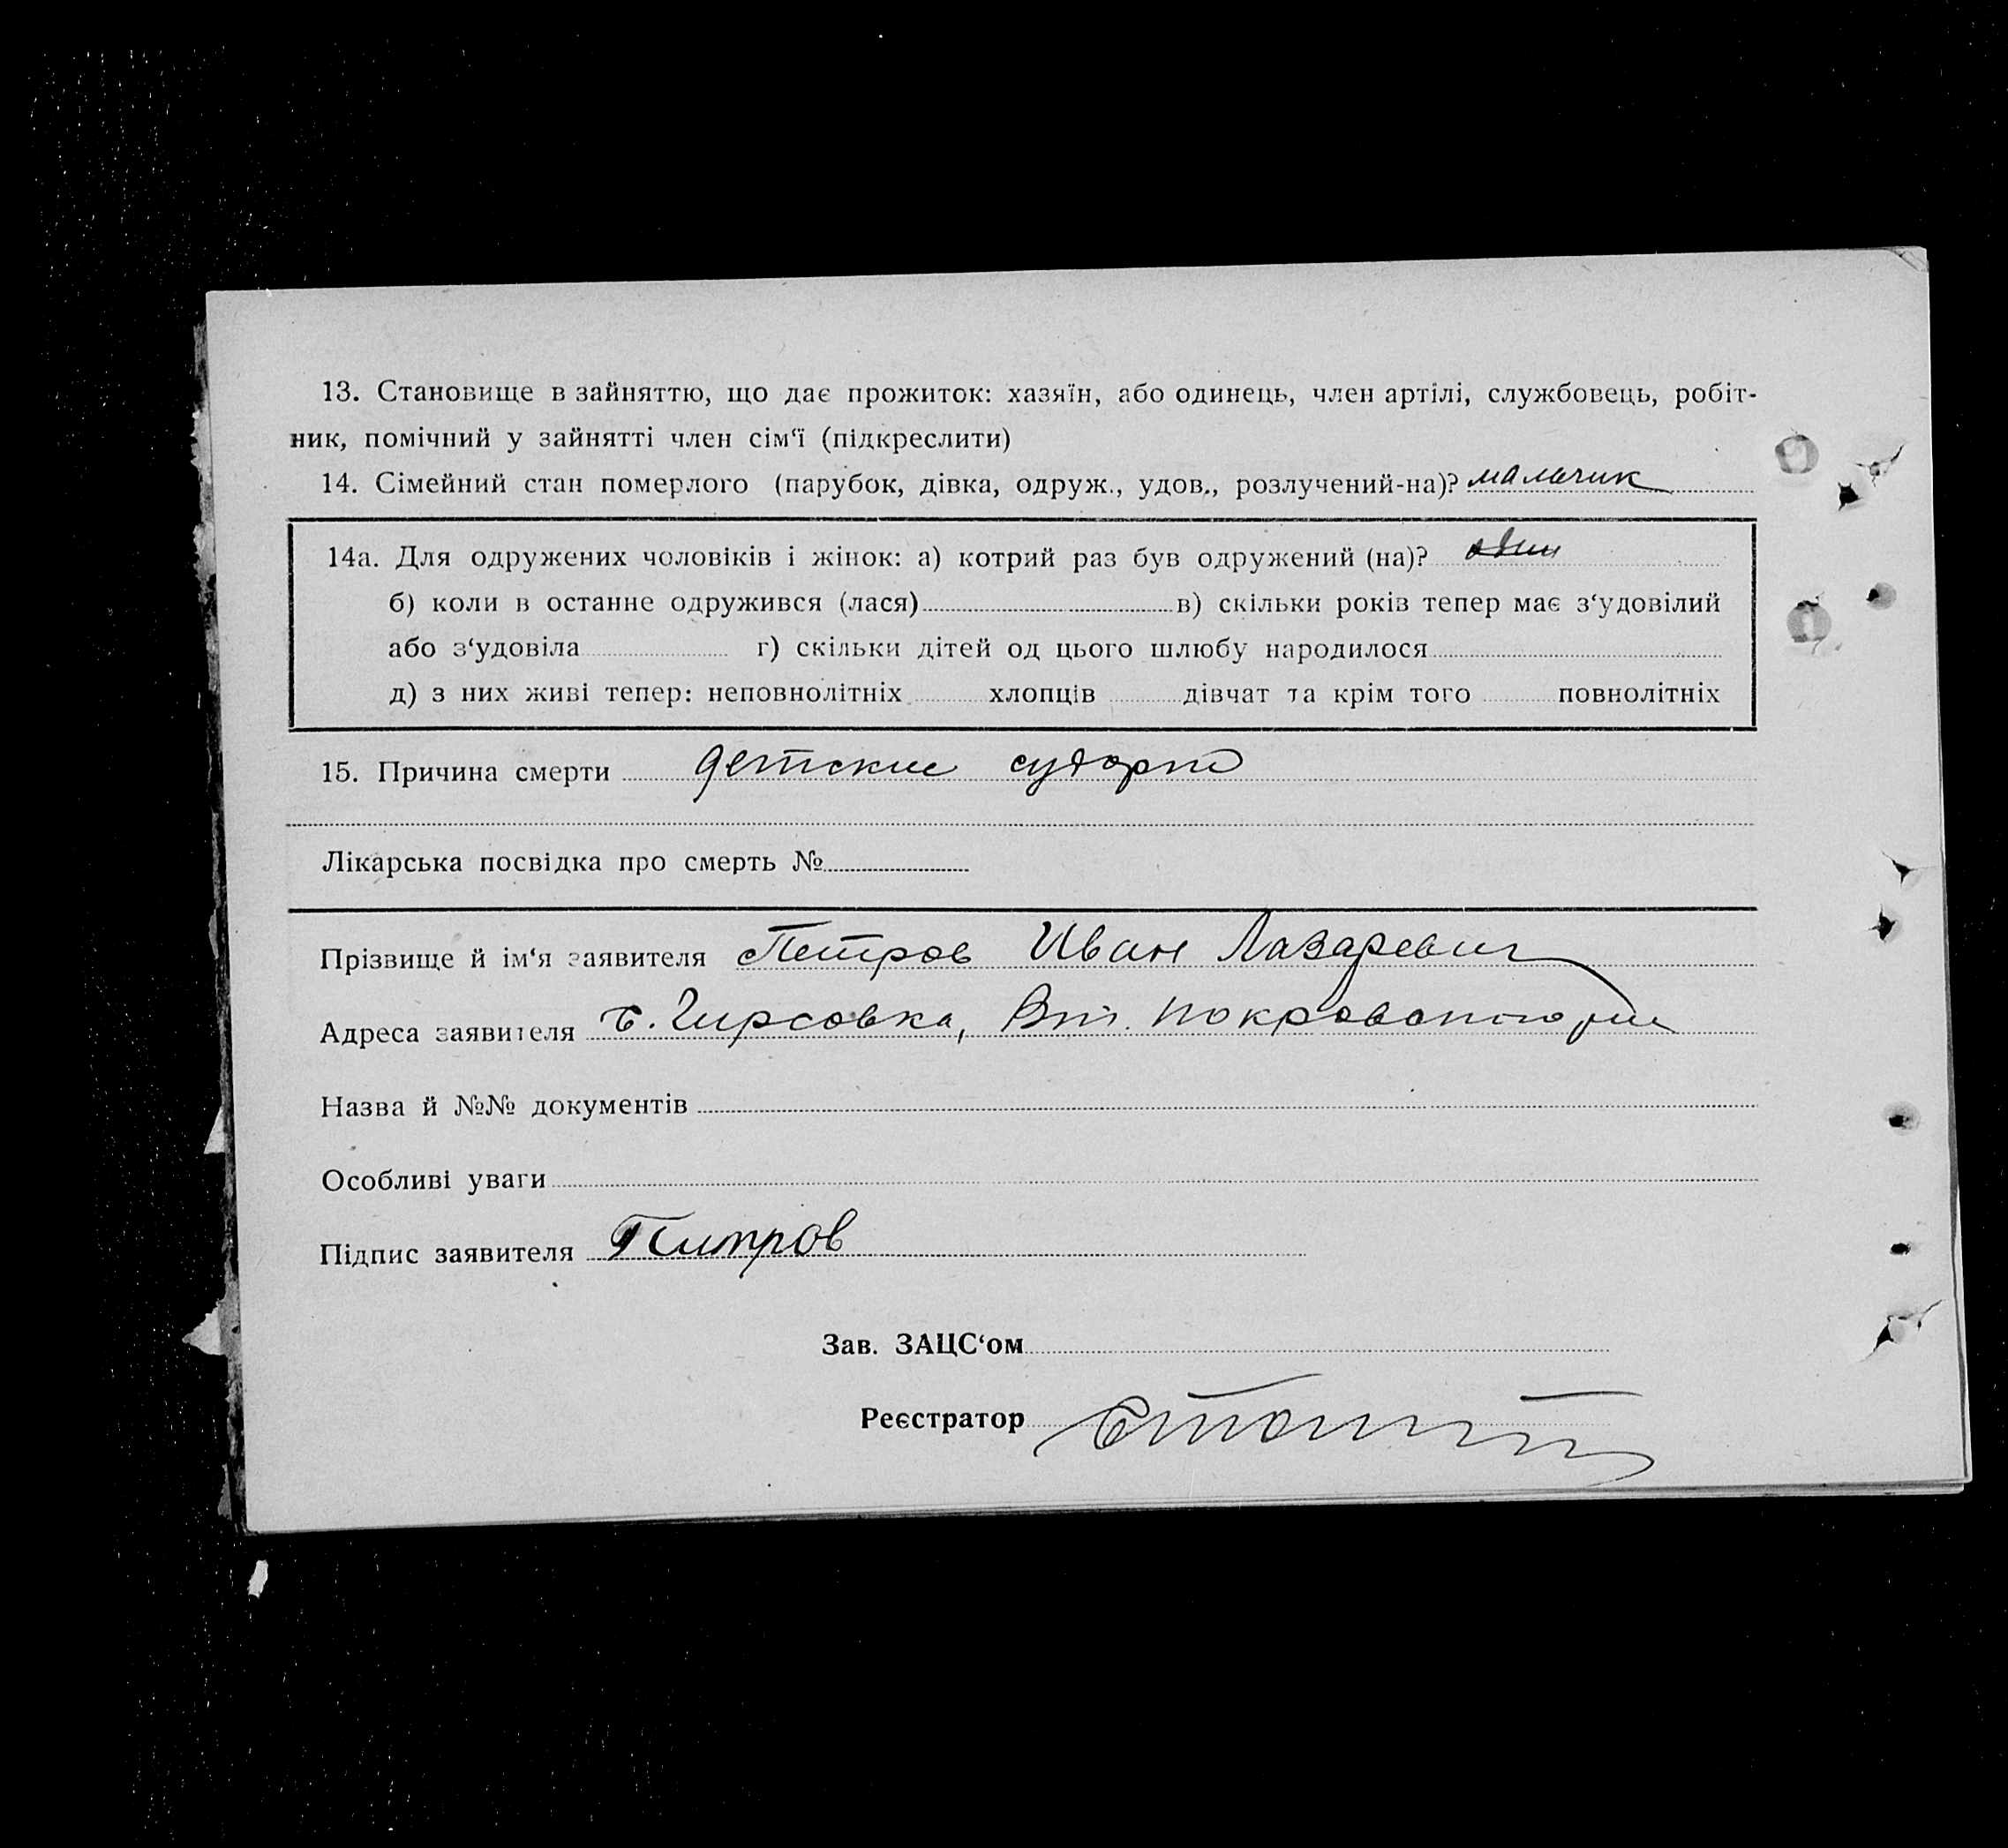 13. Становище в зайняттю, що дає прожиток: хазяїн, або одинець, член артілі, службовець, робіт-
ник, помічний у зайнятті член сім‘ї (підкреслити)
14. Сімейний стан померлого (парубок, дівка, одруж., удов., розлучений-на)? мальчик
14а. Для одружених чоловіків і жінок: а) котрий раз був одружений (на)?
б) коли в останне одружився (лася) в) скільки років тепер має з‘удовілий
або з‘удовіла г) скільки дітей од цього шлюбу народилося
д) з них живі тепер: неповнолітніх хлопців дівчат та крім того повнолітніх
15. Причина смерти детские
Лікарська посвідка про смерть №
Прізвище й ім‘я заявителя Петров Иван Лазаревич
Адреса заявителя с. Гирсовка,
Назва й №№ документів
Особливі уваги
Підпис заявителя
Зав. ЗАЦС‘ом
Реєстратор